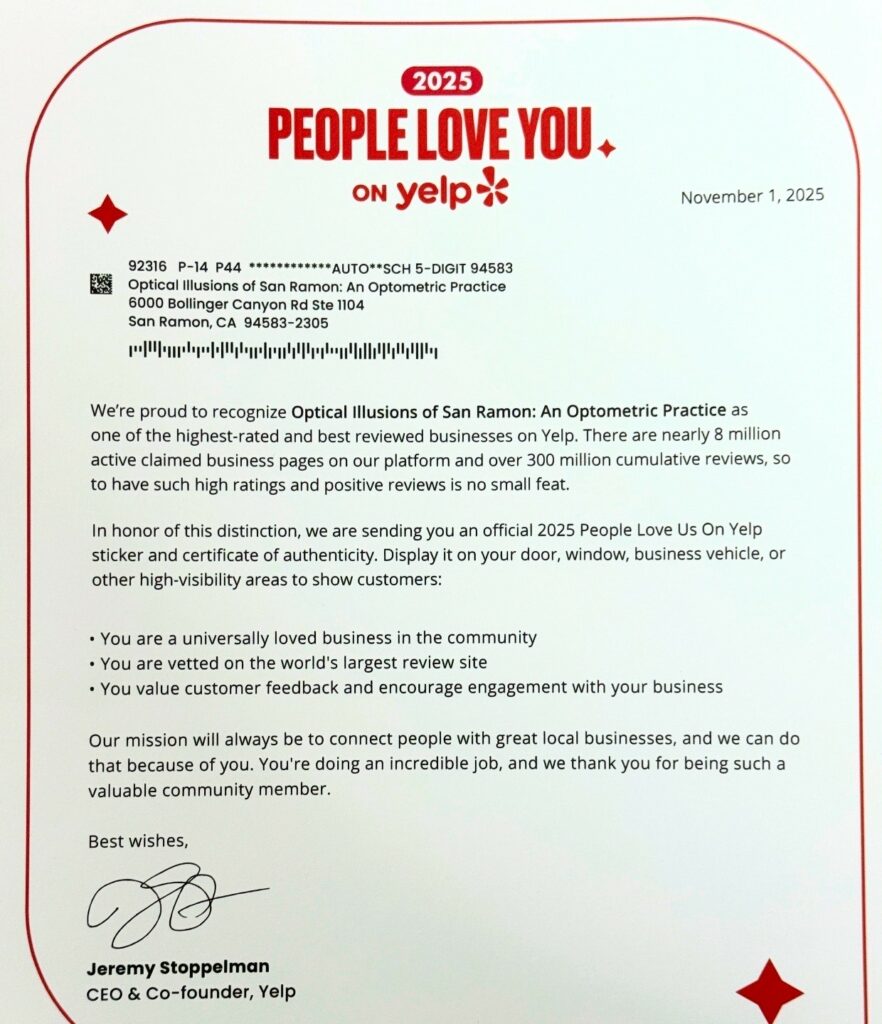 2025
PEOPLE LOVE YOU
ON yelp
November 1, 2025
92316 P-14 P44 ************AUTO**SCH 5-DIGIT 94583
Optical Illusions of San Ramon: An Optometric Practice
6000 Bollinger Canyon Rd Ste 1104
San Ramon, CA 94583-2305
We're proud to recognize Optical Illusions of San Ramon: An Optometric Practice as
one of the highest-rated and best reviewed businesses on Yelp. There are nearly 8 million
active claimed business pages on our platform and over 300 million cumulative reviews, so
to have such high ratings and positive reviews is no small feat.
In honor of this distinction, we are sending you an official 2025 People Love Us On Yelp
sticker and certificate of authenticity. Display it on your door, window, business vehicle, or
other high-visibility areas to show customers:
• You are a universally loved business in the community
• You are vetted on the world's largest review site
• You value customer feedback and encourage engagement with your business
Our mission will always be to connect people with great local businesses, and we can do
that because of you. You're doing an incredible job, and we thank you for being such a
valuable community member.
Best wishes,
Jeremy Stoppelman
CEO & Co-founder, Yelp